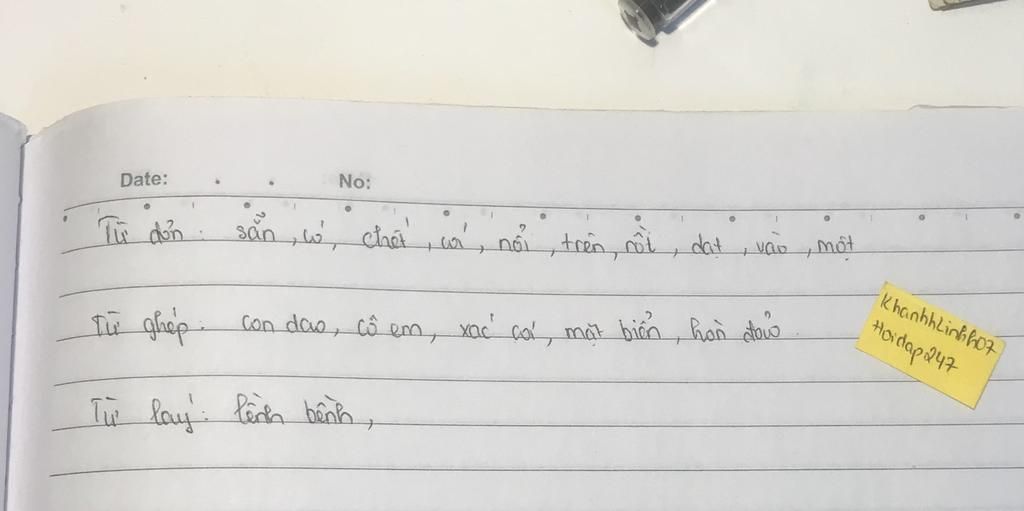 Date: . . No:
Từ đơn: sẵn, có, chết, cái, nổi, trên, rồi, dạt, vào, một
Từ ghép: con dao, cô em, xác cái, mặt biển, hòn đảo.
Từ láy: lềnh bềnh,
KhanhhLinhh07
Hoidap247